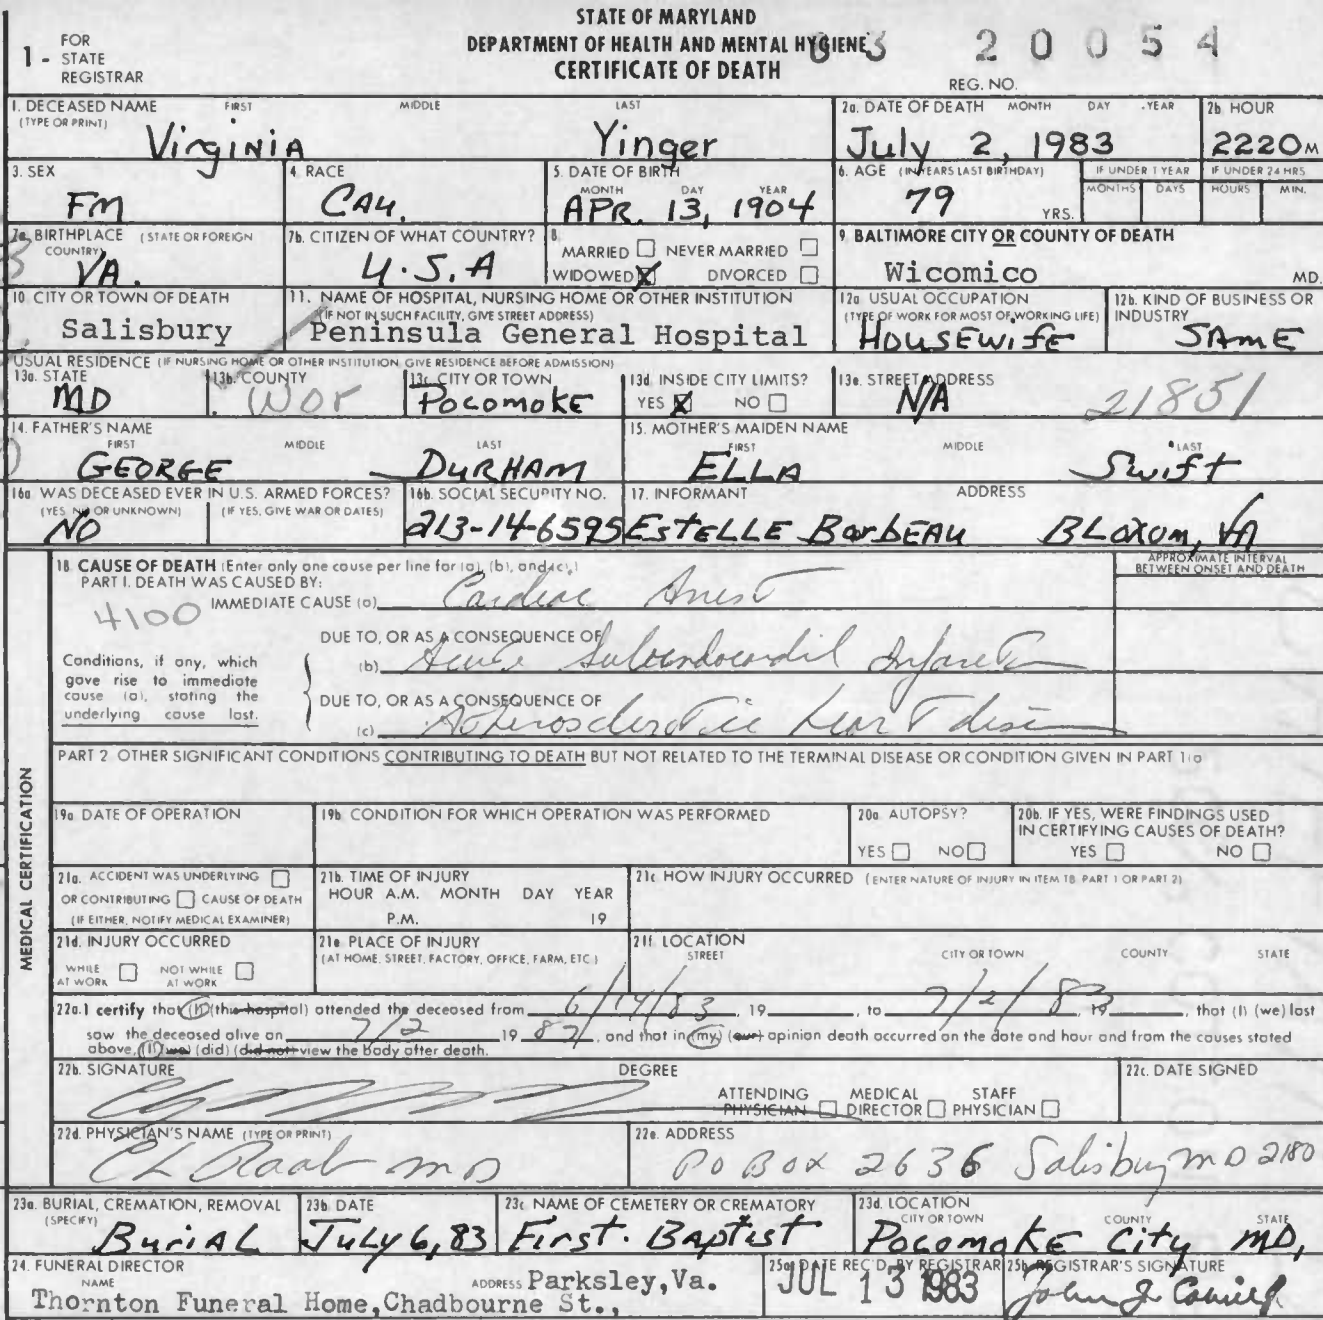 1 - FOR STATE REGISTRAR
STATE OF MARYLAND
DEPARTMENT OF HEALTH AND MENTAL HYGIENE
CERTIFICATE OF DEATH
83 20054
REG. NO.
1. DECEASED NAME (TYPE OR PRINT) FIRST MIDDLE LAST
Virginia Yinger
2a. DATE OF DEATH MONTH DAY YEAR
July 2, 1983
2b. HOUR
2220 M
3. SEX
FM
4. RACE
CAU.
5. DATE OF BIRTH MONTH DAY YEAR
APR. 13, 1904
6. AGE (IN YEARS LAST BIRTHDAY)
79 YRS.
IF UNDER 1 YEAR MONTHS DAYS
IF UNDER 24 HRS HOURS MIN.
7a. BIRTHPLACE (STATE OR FOREIGN COUNTRY)
VA.
7b. CITIZEN OF WHAT COUNTRY?
U.S.A
8. MARRIED NEVER MARRIED
WIDOWED X DIVORCED
9. BALTIMORE CITY OR COUNTY OF DEATH
Wicomico MD.
10. CITY OR TOWN OF DEATH
Salisbury
11. NAME OF HOSPITAL, NURSING HOME OR OTHER INSTITUTION
(IF NOT IN SUCH FACILITY, GIVE STREET ADDRESS)
Peninsula General Hospital
12a. USUAL OCCUPATION
(TYPE OF WORK FOR MOST OF WORKING LIFE)
HOUSEWIFE
12b. KIND OF BUSINESS OR INDUSTRY
SAME
USUAL RESIDENCE (IF NURSING HOME OR OTHER INSTITUTION GIVE RESIDENCE BEFORE ADMISSION)
13a. STATE
MD
13b. COUNTY
Wor
13c. CITY OR TOWN
Pocomoke
13d. INSIDE CITY LIMITS?
YES X NO
13e. STREET ADDRESS
N/A 21851
14. FATHER'S NAME FIRST MIDDLE LAST
GEORGE DURHAM
15. MOTHER'S MAIDEN NAME FIRST MIDDLE LAST
ELLA Swift
16a. WAS DECEASED EVER IN U.S. ARMED FORCES?
(YES, NO OR UNKNOWN) (IF YES, GIVE WAR OR DATES)
NO
16b. SOCIAL SECURITY NO.
213-14-6595
17. INFORMANT ADDRESS
ESTELLE BarbEAU BLOXUM, VA
MEDICAL CERTIFICATION
18. CAUSE OF DEATH (Enter only one cause per line for (a), (b), and (c).)
PART I. DEATH WAS CAUSED BY:
APPROXIMATE INTERVAL BETWEEN ONSET AND DEATH
IMMEDIATE CAUSE (a) Cardiac Arrest
4100
DUE TO, OR AS A CONSEQUENCE OF
(b) Acute Subendocardial Infarction
Conditions, if any, which gave rise to immediate cause (a), stating the underlying cause last.
DUE TO, OR AS A CONSEQUENCE OF
(c) Atherosclerotic heart disease
PART 2. OTHER SIGNIFICANT CONDITIONS CONTRIBUTING TO DEATH BUT NOT RELATED TO THE TERMINAL DISEASE OR CONDITION GIVEN IN PART 1(a)
19a. DATE OF OPERATION
19b. CONDITION FOR WHICH OPERATION WAS PERFORMED
20a. AUTOPSY?
YES NO
20b. IF YES, WERE FINDINGS USED IN CERTIFYING CAUSES OF DEATH?
YES NO
21a. ACCIDENT WAS UNDERLYING
OR CONTRIBUTING CAUSE OF DEATH
(IF EITHER, NOTIFY MEDICAL EXAMINER)
21b. TIME OF INJURY
HOUR A.M. MONTH DAY YEAR
P.M. 19
21c. HOW INJURY OCCURRED (ENTER NATURE OF INJURY IN ITEM 18, PART 1 OR PART 2)
21d. INJURY OCCURRED
WHILE AT WORK NOT WHILE AT WORK
21e. PLACE OF INJURY
(AT HOME, STREET, FACTORY, OFFICE, FARM, ETC.)
21f. LOCATION
STREET CITY OR TOWN COUNTY STATE
22a. I certify that (I) (this hospital) attended the deceased from 6/14/83, 19 , to 7/2/83, 19 , that (I) (we) last
saw the deceased alive on 7/2 19 83, and that in (my) (our) opinion death occurred on the date and hour and from the causes stated
above, (I) (we) (did) (did not) view the body after death.
22b. SIGNATURE DEGREE
ATTENDING PHYSICIAN MEDICAL DIRECTOR STAFF PHYSICIAN
22c. DATE SIGNED
22d. PHYSICIAN'S NAME (TYPE OR PRINT)
CL Raab MD
22e. ADDRESS
PO BOX 2636 Salisbury MD 2180
23a. BURIAL, CREMATION, REMOVAL (SPECIFY)
Burial
23b. DATE
July 6, 83
23c. NAME OF CEMETERY OR CREMATORY
First. Baptist
23d. LOCATION CITY OR TOWN COUNTY STATE
Pocomoke City MD,
24. FUNERAL DIRECTOR
NAME ADDRESS Parksley, Va.
Thornton Funeral Home, Chadbourne St.,
25a. DATE REC'D. BY REGISTRAR
JUL 13 1983
25b. REGISTRAR'S SIGNATURE
John J.